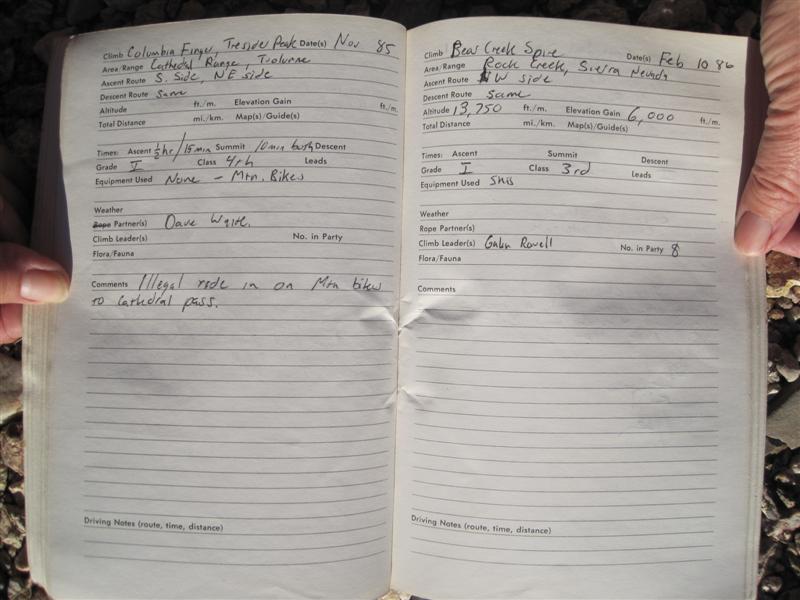 Climb Columbia Finger, Tresider Peak Date(s) Nov 85
Area/Range Cathedral Range, Tuolumne
Ascent Route S. Side, NE side
Descent Route same
Altitude ft./m. Elevation Gain ft./m.
Total Distance mi./km. Map(s)/Guide(s)
Times: Ascent 1/2 hr/15 min Summit 10 min both Descent
Grade I Class 4th Leads
Equipment Used None - Mtn. Bikes
Weather
Rope Partner(s) Dave
Climb Leader(s) No. in Party
Flora/Fauna
Comments Illegal ride in on Mtn bikes
to Cathedral pass.
Driving Notes (route, time, distance)
Climb Bear Creek Spire Date(s) Feb 10 86
Area/Range Rock Creek, Sierra Nevada
Ascent Route NW side
Descent Route same
Altitude 13,750 ft./m. Elevation Gain 6,000 ft./m.
Total Distance mi./km. Map(s)/Guide(s)
Times: Ascent Summit Descent
Grade I Class 3rd Leads
Equipment Used Skis
Weather
Rope Partner(s)
Climb Leader(s) Galen Rowell No. in Party 8
Flora/Fauna
Comments
Driving Notes (route, time, distance)